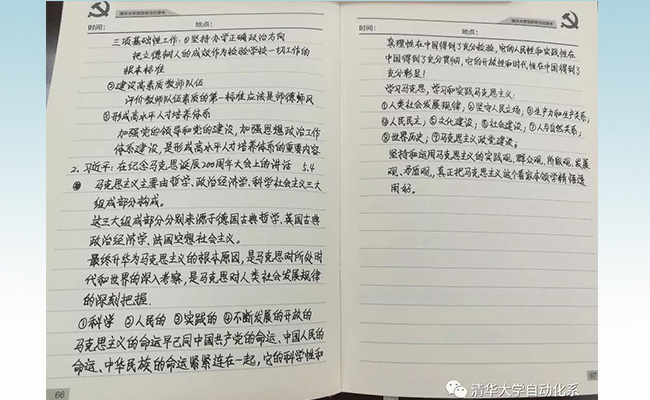 清华大学党员学习记录本
时间：
地点：
三项基础性工作：①坚持办学正确政治方向
把立德树人的成效作为检验学校一切工作的
根本标准
②建设高素质教师队伍
评价教师队伍素质的第一标准应该是师德师风
③形成高水平人才培养体系
加强党的领导和党的建设，加强思想政治工作
体系建设，是形成高水平人才培养体系的重要内容
2、习近平：在纪念马克思诞辰200周年大会上的讲话 5.4
马克思主义主要由哲学、政治经济学、科学社会主义三大
组成部分构成。
这三大组成部分分别来源于德国古典哲学、英国古典
政治经济学、法国空想社会主义。
最终升华为马克思主义的根本原因，是马克思对所处时
代和世界的深入考察，是马克思对人类社会发展规律
的深刻把握.
①科学 ②人民的 ③实践的 ④不断发展的开放的
马克思主义的命运早已同中国共产党的命运、中国人民的
命运、中华民族的命运紧紧连在一起，它的科学性和
66
时间：
地点：
真理性在中国得到了充分检验，它的人民性和实践性在
中国得到了充分贯彻，它的开放性和时代性在中国得到了
充分彰显！
学习马克思，学习和实践马克思主义：
①人类社会发展规律；②坚守人民立场；③生产力和生产关系；
④人民民主；⑤文化建设；⑥社会建设；⑦人与自然关系；
⑧世界历史；⑨马克思主义政党建设。
坚持和运用马克思主义的实践观、群众观、阶级观、发展
观、矛盾观，真正把马克思主义这个看家本领学精悟透
用好。
67
清华大学自动化系